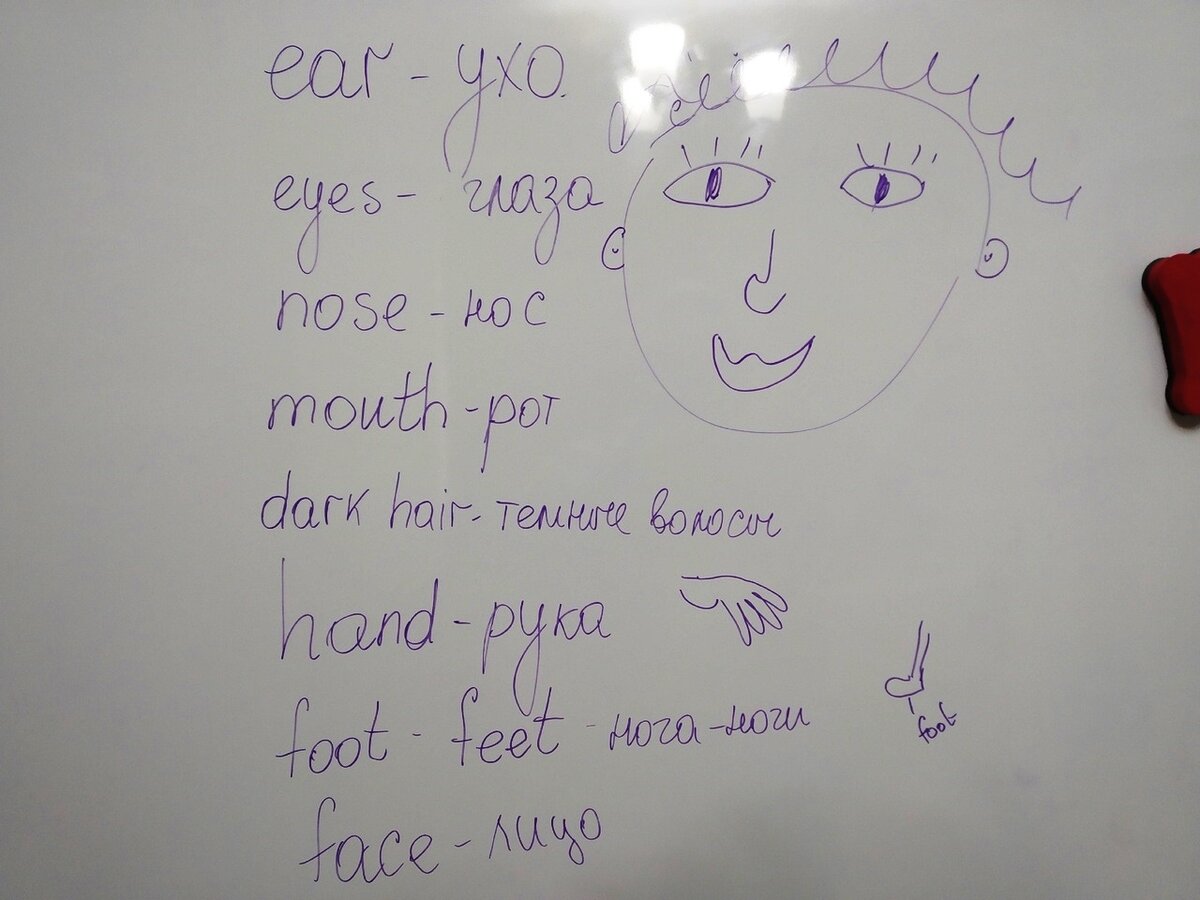 ear - ухо.
eyes - глаза
nose - нос
mouth - рот
dark hair - темные волосы
hand - рука
foot - feet - нога - ноги
foot
face - лицо